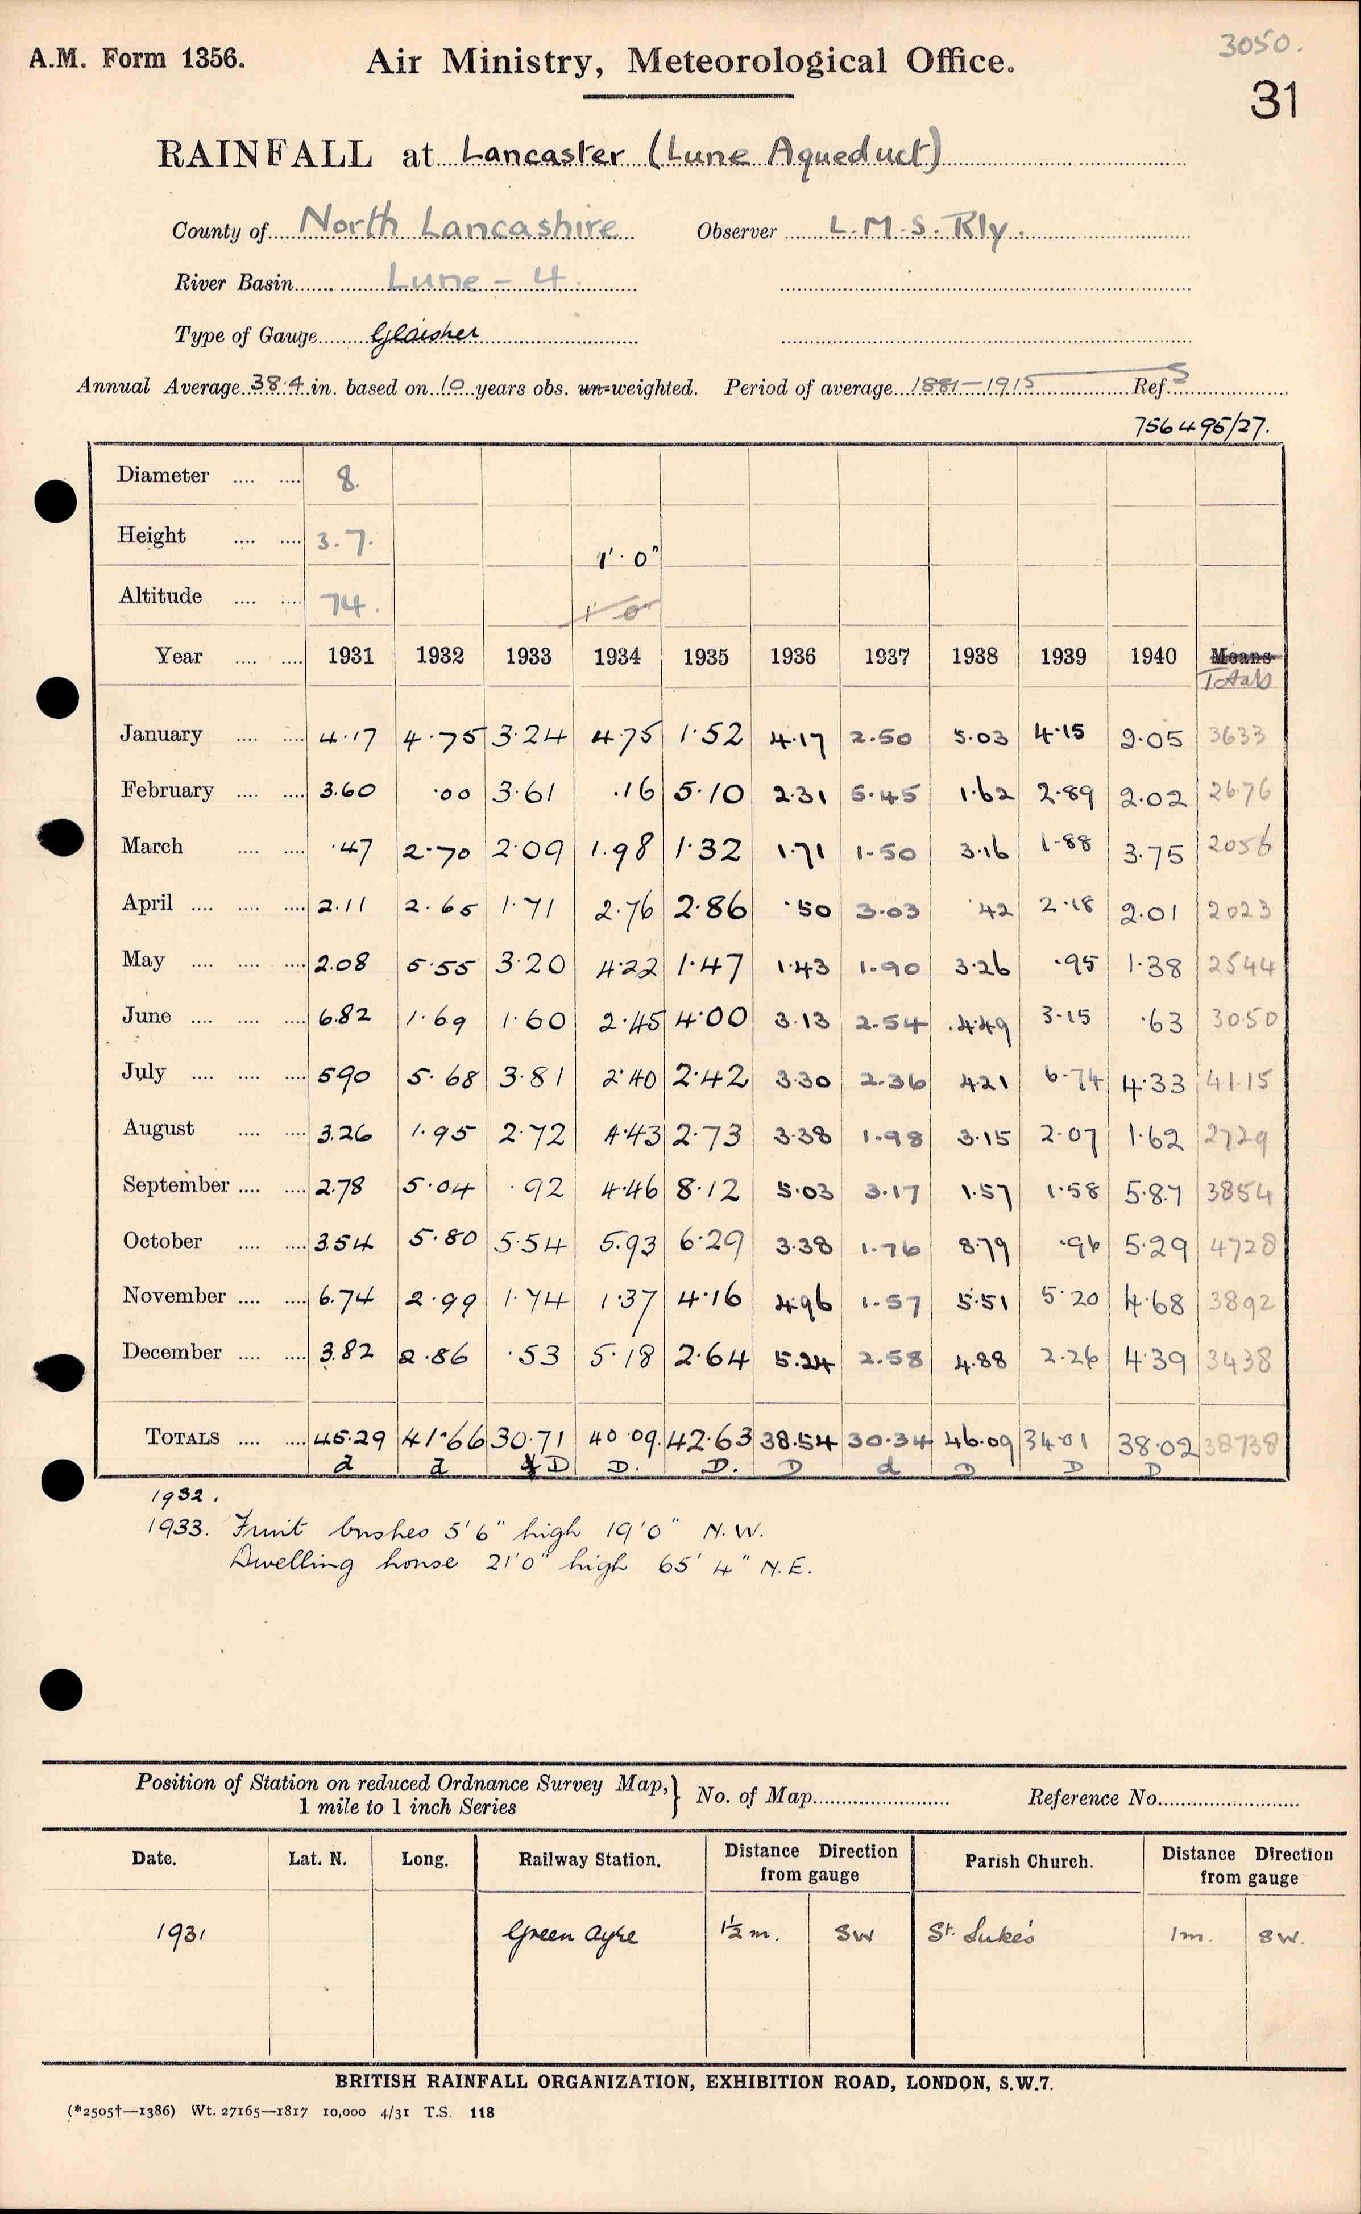 3050.
A.M. Form 1356. Air Ministry, Meteorological Office.
31
RAINFALL at Lancaster (Lune Aqueduct)
County of North Lancashire Observer L.M.S. Rly.
River Basin Lune - 4
Type of Gauge Glaisher
Annual Average 38.4 in. based on 10 years obs. un-weighted. Period of average 1881-1915 Ref. S
756495/27.
Diameter 8.
Height 3.7. 1'.0"
Altitude 74. 1 0
Year 1931 1932 1933 1934 1935 1936 1937 1938 1939 1940 Means
Totals
January 4.17 4.75 3.24 4.75 1.52 4.17 2.50 5.03 4.15 2.05 3633
February 3.60 .00 3.61 .16 5.10 2.31 5.45 1.62 2.89 2.02 2676
March .47 2.70 2.09 1.98 1.32 1.71 1.50 3.16 1.88 3.75 2056
April 2.11 2.65 1.71 2.76 2.86 .50 3.03 .42 2.18 2.01 2023
May 2.08 5.55 3.20 4.22 1.47 1.43 1.90 3.26 .95 1.38 2544
June 6.82 1.69 1.60 2.45 4.00 3.13 2.54 4.49 3.15 .63 3050
July 5.90 5.68 3.81 2.40 2.42 3.30 2.36 4.21 6.74 4.33 41.15
August 3.26 1.95 2.72 4.43 2.73 3.38 1.98 3.15 2.07 1.62 2729
September 2.78 5.04 .92 4.46 8.12 5.03 3.17 1.57 1.58 5.87 3854
October 3.54 5.80 5.54 5.93 6.29 3.38 1.76 8.79 .96 5.29 4728
November 6.74 2.99 1.74 1.37 4.16 4.96 1.57 5.51 5.20 4.68 3892
December 3.82 2.86 .53 5.18 2.64 5.24 2.58 4.88 2.26 4.39 3438
TOTALS 45.29 41.66 30.71 40.09. 42.63 38.54 30.34 46.09 34.01 38.02 38738
d d D D. D. D d D D D
1932.
1933. Fruit bushes 5'6" high 19'0" N.W.
Dwelling house 21'0" high 65'4" N.E.
Position of Station on reduced Ordnance Survey Map, } No. of Map Reference No.
1 mile to 1 inch Series
Date. Lat. N. Long. Railway Station. Distance Direction from gauge Parish Church. Distance Direction from gauge
1931 Green Ayre 1½ m. SW St. Luke's 1m. SW.
BRITISH RAINFALL ORGANIZATION, EXHIBITION ROAD, LONDON, S.W.7.
(*2505†—1386) Wt. 27165—1817 10,000 4/31 T.S. 118